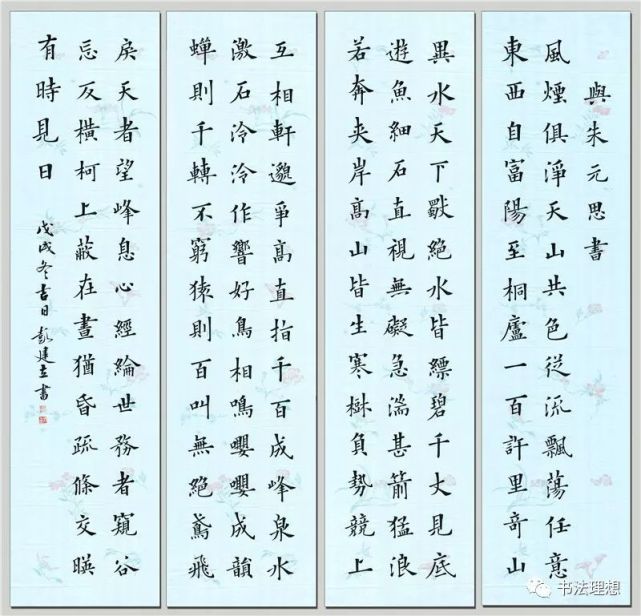 與朱元思書
風煙俱淨天山共色從流飄蕩任意
東西自富陽至桐廬一百許里奇山
異水天下獨絕水皆縹碧千丈見底
遊魚細石直視無礙急湍甚箭猛浪
若奔夾岸高山皆生寒樹負勢競上
互相軒邈爭高直指千百成峰泉水
激石泠泠作響好鳥相鳴嚶嚶成韻
蟬則千轉不窮猿則百叫無絕鳶飛
戾天者望峰息心經綸世務者窺谷
忘反橫柯上蔽在晝猶昏疏條交暎
有時見日
戊戌冬吉日彭建立書
书法理想